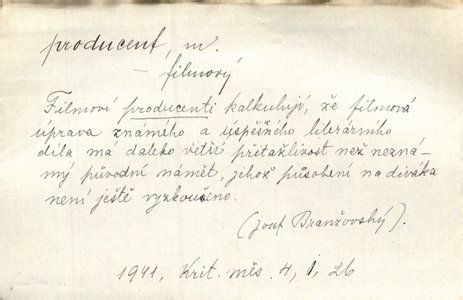 producent, m.
– filmový
Filmoví producenti kalkulují, že filmová
úprava známého a úspěšného literárního
díla má daleko větší přitažlivost než nezná-
mý původní námět, jehož působení na diváka
není ještě vyzkoušeno.
(Josef Branžovský).
1941, Krit. měs. 4, 1, 26